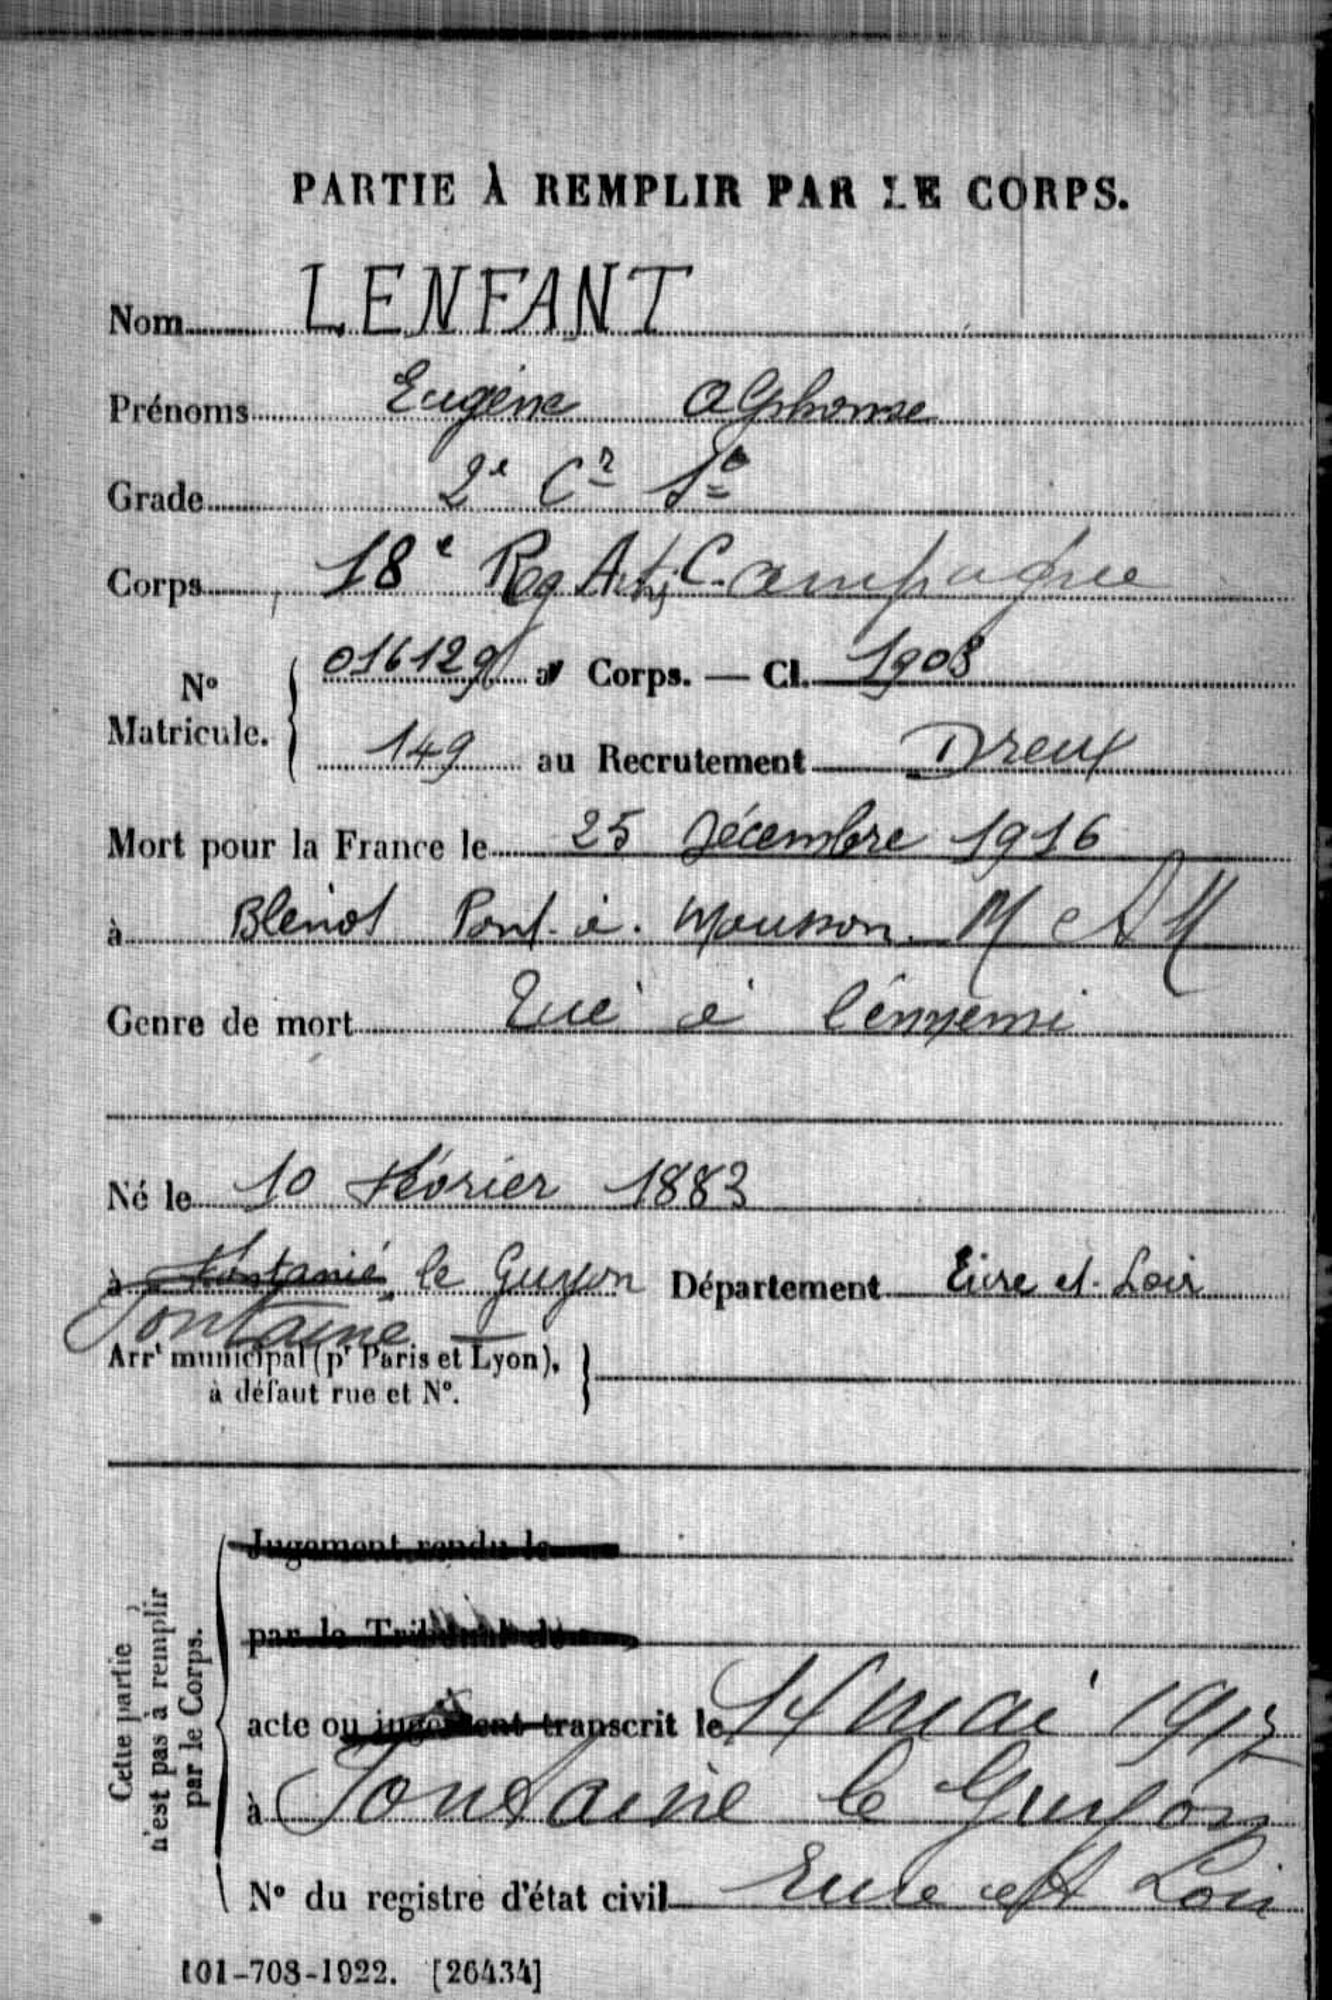 PARTIE À REMPLIR PAR LE CORPS.
Nom LENFANT
Prénoms Eugène Alphonse
Grade 2e Cr Se
Corps 18e Reg Art, Campagne
No Matricule. 016129 au Corps. — Cl. 1903
149 au Recrutement Dreux
Mort pour la France le 25 Décembre 1916
à Blénot Pont-à-Mousson. M et M
Genre de mort Tué à l'ennemi
Né le 10 Février 1883
à Fontanié le Guyon Département Eure et-Loir
Fontaine
Arrt municipal (pr Paris et Lyon),
à défaut rue et No.
Cette partie
n'est pas à remplir
par le Corps.
Jugement rendu le
par le Tribunal de
acte ou jugement transcrit le 14 mai 1917
à Fontaine le Guyon
No du registre d'état civil Eure et Loir
101-708-1922. [26434]